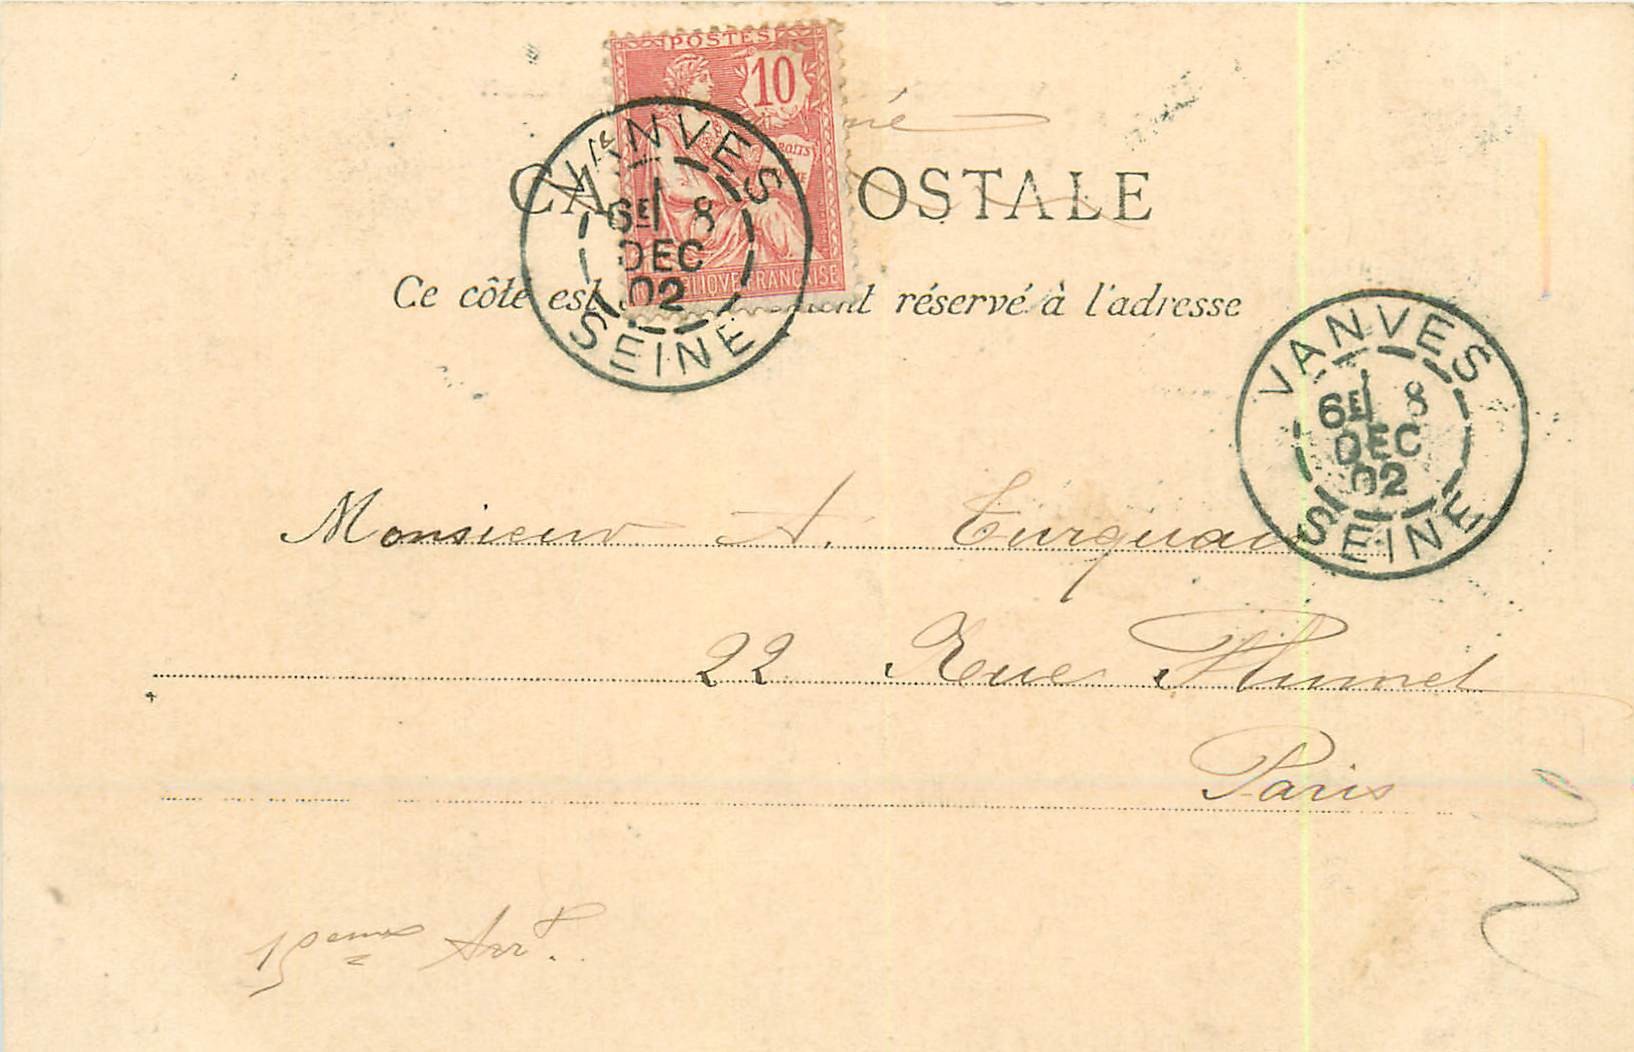 POSTES
10
DROITS
FRANÇAISE
VANVES
6E 8
DEC
02
SEINE
CA OSTALE
Ce côté est réservé à l'adresse
VANVES
6E 8
DEC
02
SEINE
Monsieur A. Turquais
22 Rue Plumet
Paris
15eme Arrt.